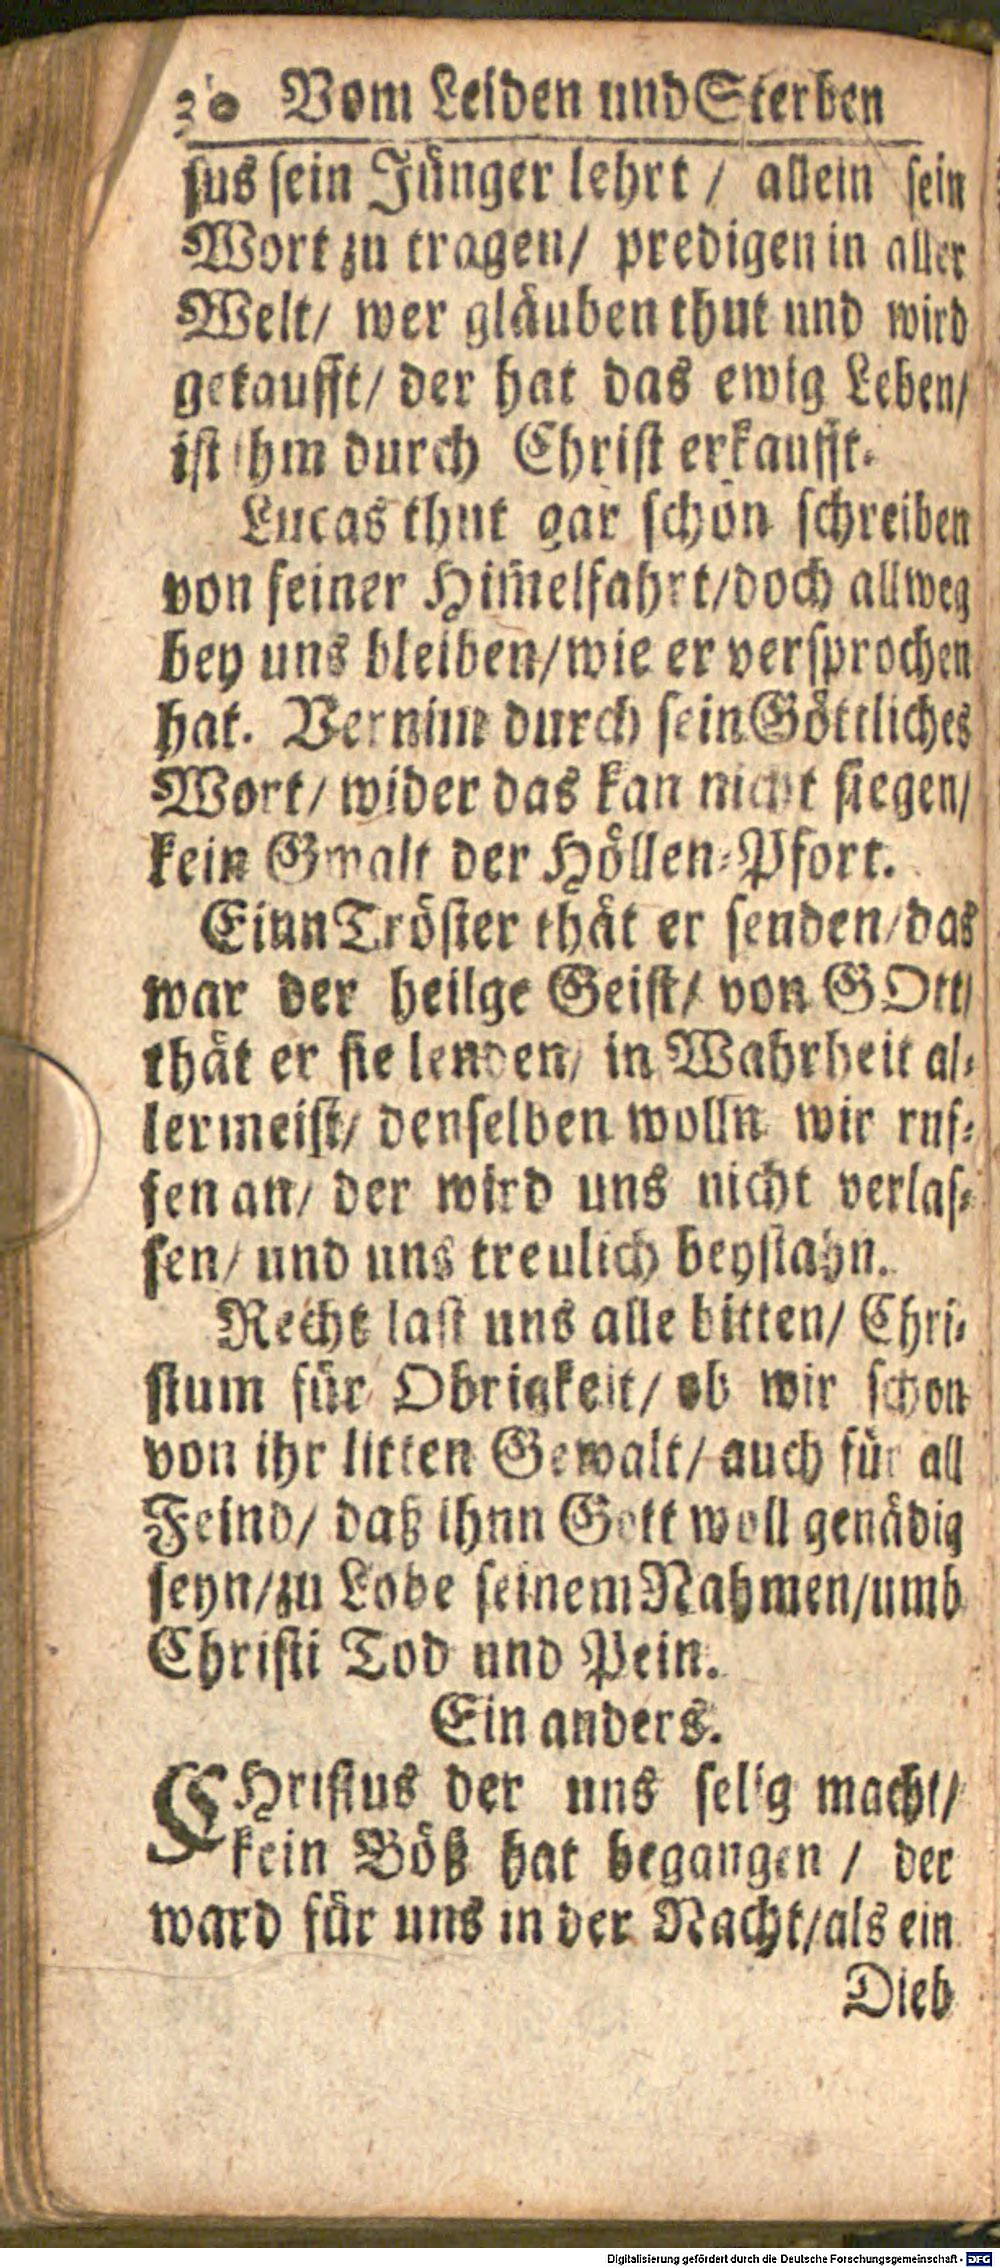 30 Vom Leiden und Sterben
sus sein Jünger lehrt / allein sein
Wort zu tragen / predigen in aller
Welt / wer gläuben thut und wird
getaufft / der hat das ewig Leben /
ist ihm durch Christ erkaufft.
Lucas thut gar schön schreiben
von seiner Him̃elfahrt / doch allweg
bey uns bleiben / wie er versprochen
hat. Vernim̃ durch sein Göttliches
Wort / wider das kan nicht siegen /
kein Gwalt der Höllen-Pfort.
Einn Tröster thät er senden / das
war der heilge Geist / von GOtt /
thät er sie lenden / in Wahrheit al-
lermeist / denselben wolln wir ruf-
fen an / der wird uns nicht verlas-
sen / und uns treulich beystahn.
Recht last uns alle bitten / Chri-
stum für Obrigkeit / ob wir schon
von ihr litten Gewalt / auch für all
Feind / daß ihnn Gott woll genädig
seyn / zu Lobe seinem Nahmen / umb
Christi Tod und Pein.
Ein anders.
CHristus der uns selig macht /
kein Böß hat begangen / der
ward für uns in der Nacht / als ein
Dieb
Digitalisierung gefördert durch die Deutsche Forschungsgemeinschaft - DFG